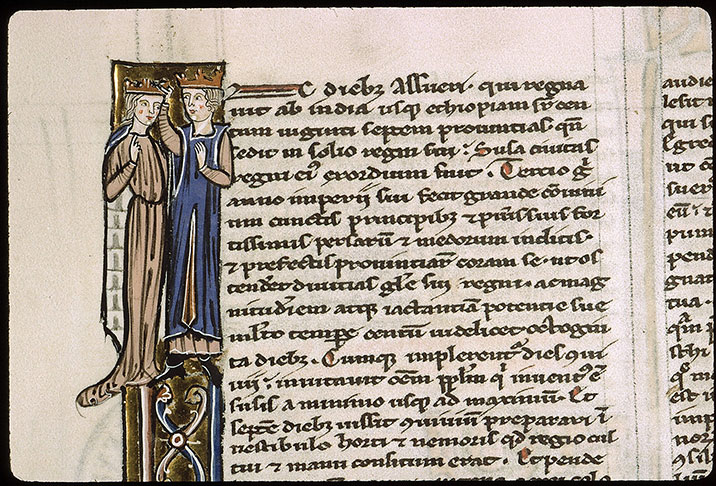 diebꝫ Assueri · qui regna
uit ab india usq; ethiopiam sr̄ cen
tum uiginti septem prouintias qn̄
sedit in solio regni sui : Susa ciuitas
regni ei⁹ exordium fuit · Tercio gͥ
anno imperii sui fecit grande conuiui
um cunctis principibꝫ ⁊ pueris suis for
tissimis persarū ⁊ medorum inclitis ·
⁊ prefectis prouintiaꝝ coram se · ut os
tenderet diuitias gl̄e sui regni · ac mag
nitudinem atq; iactantiā potentie sue
multo tempore centū uidelicet octogin
ta diebꝫ · Cumq; implerent᷑ dies ꝯuiuii
: inuitauit om̄em ppl̄m qͥ inuent⁹ ē
susis a minimo usq; ad maximum · Et
septem diebꝫ iussit ꝯuiuiū preparari ī
uestibulo horti ⁊ nemoris qd̄ regio cul
tu ⁊ manu consitum erat · Et pende
audie
qui s
ut c
suer
pum
pend
guat
tua ·
schi
est u
imp
nor